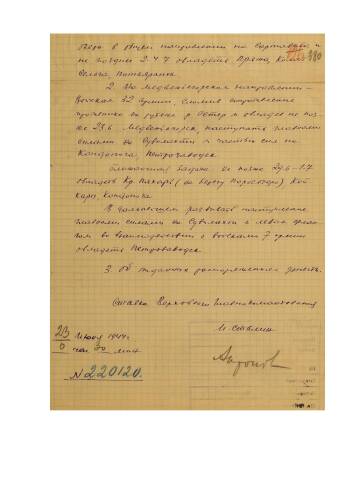 вести в общем направлении на Сортавала и
не позднее 2-4.7 овладеть Пряжа,
Ведлога, Питкяранта.
2. На Медвежьегорском направлении –
войскам 32 армии, сломив
противника на рубеже р. овладеть не поз-
же 23.6 Медвежьегорск, наступать главными
силами на Суоярви и частью сил на
Кондопога, Петрозаводск.
Ближайшая задача не позже 29.6-1.7
овладеть
Кондопога
В дальнейшем развивать наступление
главными силами на Суоярви и левым флан-
гом во взаимодействии с войсками 7 армии
овладеть Петрозаводск.
3. Об отданных распоряжениях донести.
Ставка Верховного Главнокомандования
И. Сталин
Антонов
23 Июня 1944 г.
0 час 30 мин
№ 220120.